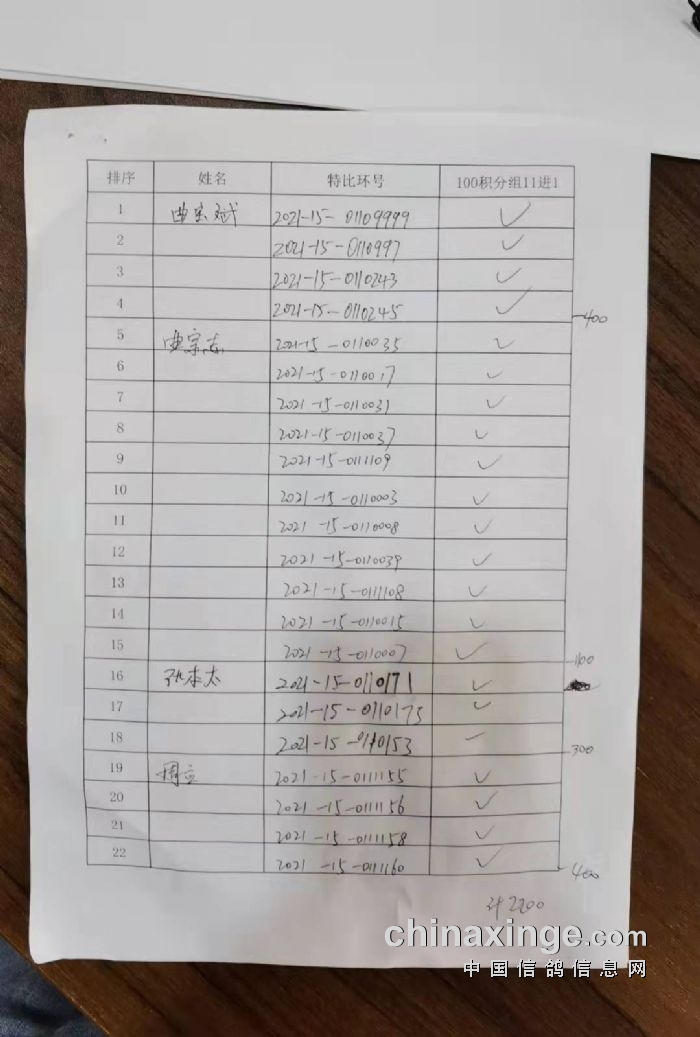 排序 姓名 特比环号 100积分组11进1
1 曲宗斌 2021-15-01109999 ✓
2 2021-15-0110997 ✓
3 2021-15-0110243 ✓
4 2021-15-0110245 ✓ 400
5 曲宗志 2021-15-0110035 ✓
6 2021-15-0110017 ✓
7 2021-15-0110031 ✓
8 2021-15-0110037 ✓
9 2021-15-0111109 ✓
10 2021-15-0110003 ✓
11 2021-15-0110008 ✓
12 2021-15-0110039 ✓
13 2021-15-0111108 ✓
14 2021-15-0110015 ✓
15 2021-15-0110007 ✓ 1100
16 孙本太 2021-15-0110171 ✓
17 2021-15-0110175 ✓
18 2021-15-0110153 300
19 2021-15-0111155 ✓
20 2021-15-0111156 ✓
21 2021-15-0111158 ✓
22 2021-15-0111160 ✓ 400
计2200
chinaxinge.com
中国信鸽信息网